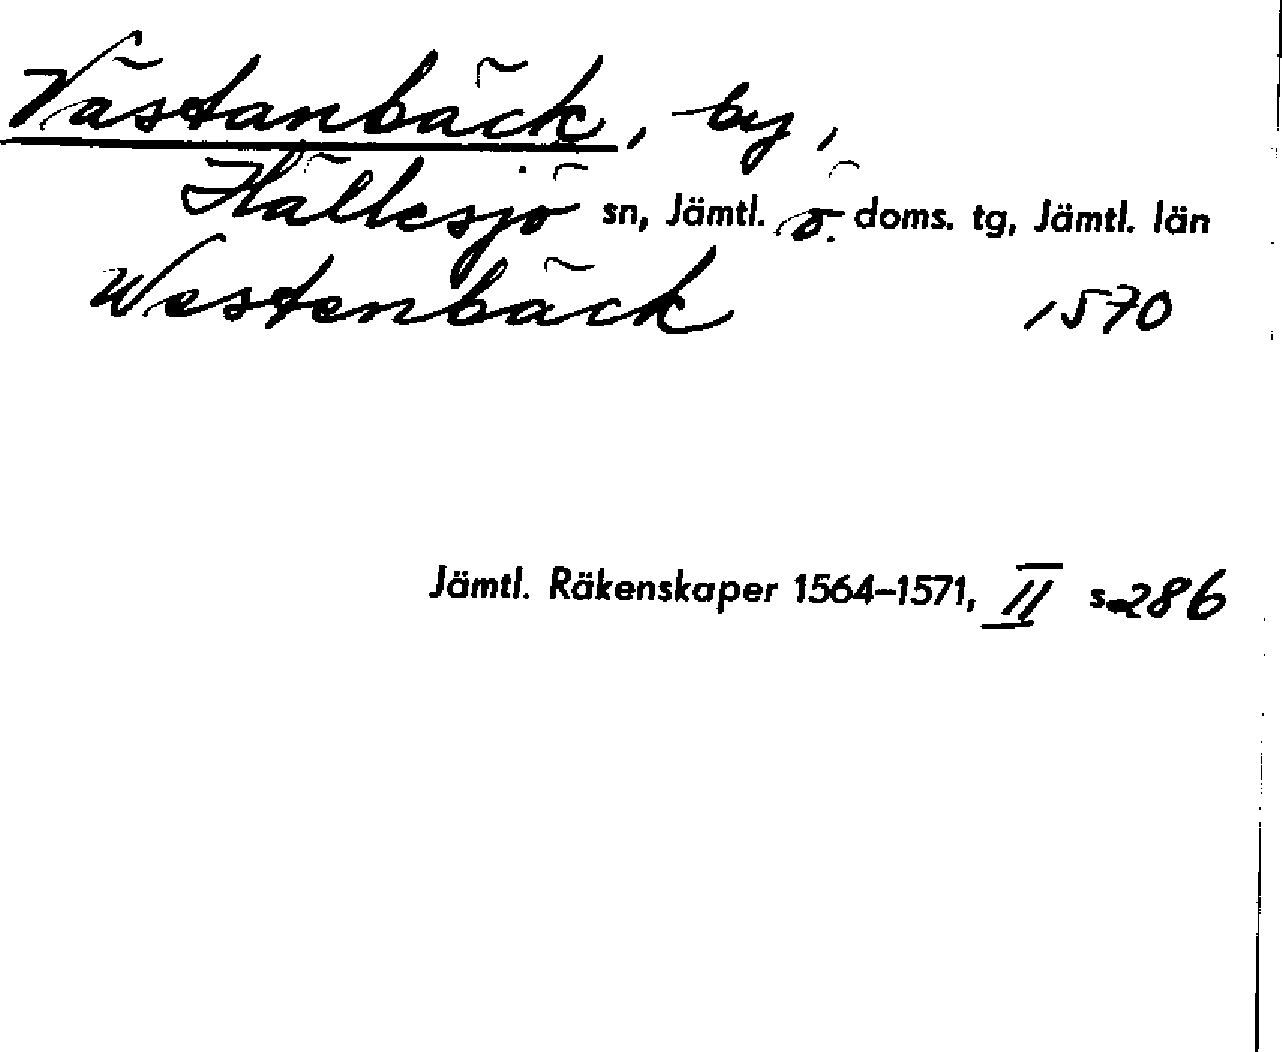 Västanbäck, by,
Hällesjö sn, Jämtl. ö. doms. tg, Jämtl. län
Westenbäck 1570
Jämtl. Räkenskaper 1564–1571, II s. 286